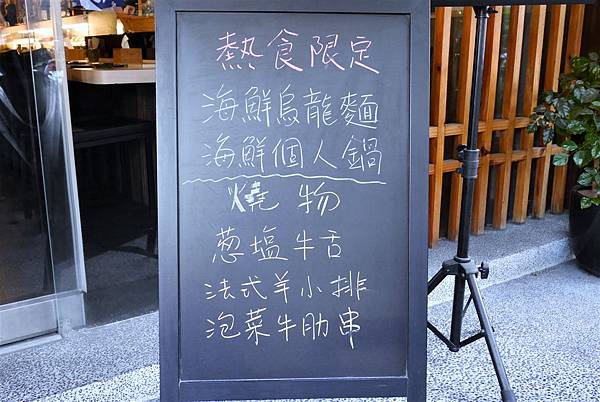 熱食限定
海鮮烏龍麵
海鮮個人鍋
燒物
蔥塩牛舌
法式羊小排
泡菜牛肋串